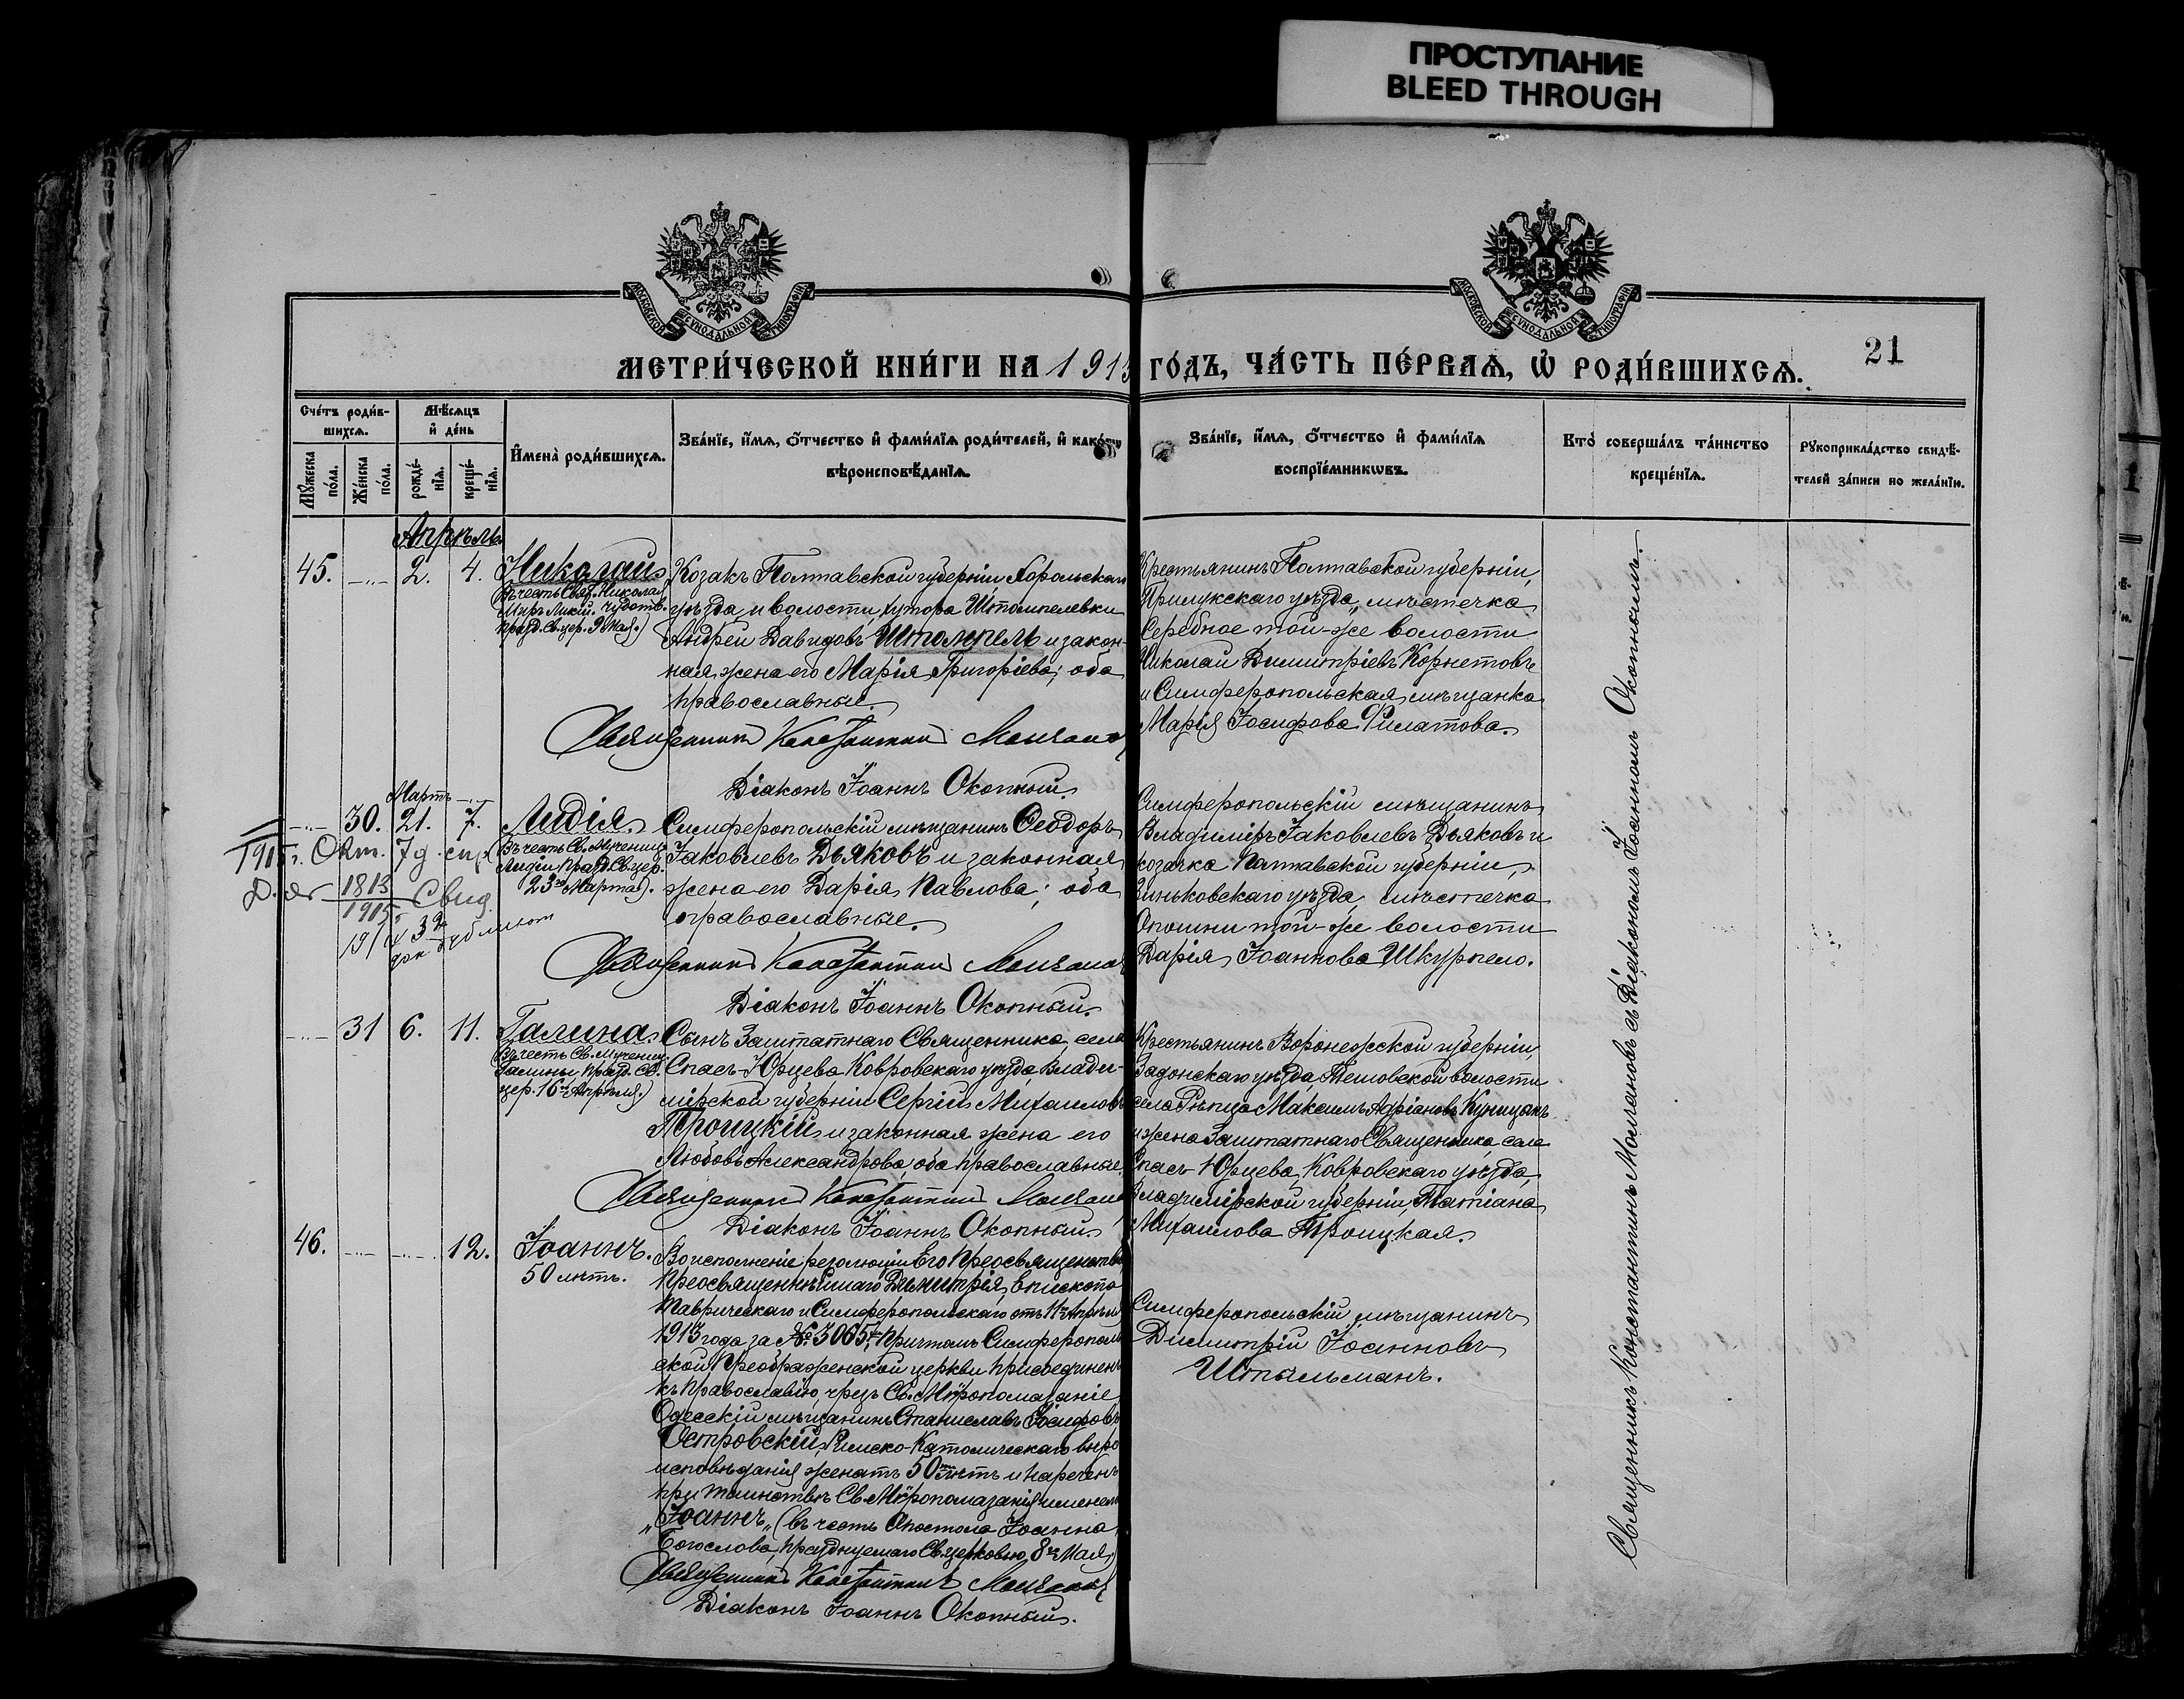 ПРОСТУПАНИЕ
BLEED THROUGH
МОСКОВСКОЙ СѴНОДАЛЬНОЙ ТИПОГРАФІИ
МОСКОВСКОЙ СѴНОДАЛЬНОЙ ТИПОГРАФІИ
МЕТРИ́ЧЕСКОЙ КНИ́ГИ НА 1913 ГО́ДЪ, ЧА́СТЬ ПЕ́РВАѦ, Ѡ҆ РОДИ́ВШИХСѦ.
21
Сче́тъ роди́в-
шихсѧ.
Мѣ́сѧцъ
и҆ де́нь
Мꙋ́жеска
по́ла.
Же́нска
по́ла.
рожде́-
нїѧ.
креще́-
нїѧ.
И҆мена̀ роди́вшихсѧ.
Зва́нїе, и҆́мѧ, ѻ҆́тчество и҆ фами́лїѧ роди́телей, и҆ како́гѡ
вѣроисповѣ́данїѧ.
Зва́нїе, и҆́мѧ, ѻ҆́тчество и҆ фами́лїѧ
воспрїе́мникѡвъ.
Кто̀ соверша́лъ та́инство
креще́нїѧ.
Рꙋкоприкла́дство свидѣ́-
телей за́писи по жела́нїю.
Апрѣль.
45. 2. 4. Николай
Въ честь Свят. Николая
Миръ Ликій. чудотв.
празд. Св. цер. 9 Мая.)
Козакъ Полтавской губерніи, Хорольскаго
уѣзда и волости, хутора Штомпелевки
Андрей Давидовъ Штомпель и закон-
ная жена его Марія Григоріева; оба
православные.
Священникъ Константинъ Молчановъ
Діаконъ Іоаннъ Окопный.
Крестьянинъ Полтавской губерніи,
Прилукскаго уѣзда, мѣстечка
Серебное той-же волости
Николай Димитріевъ Корнетовъ
и Симферопольская мѣщанка
Марія Іосифова Филатова.
Мартъ
30. 21. 7. Лидія.
Въ честь Св. Мученицы
Лидіи празд. Св. цер.
23го Марта).
Симферопольскій мѣщанинъ Ѳеодоръ
Іаковлевъ Дьяковъ и законная
жена его Дарія Павлова; оба
православные.
Священникъ Константинъ Молчановъ
Діаконъ Іоаннъ Окопный.
Симферопольскій мѣщанинъ
Владиміръ Іаковлевъ Дьяковъ и
козачка Полтавской губерніи,
Зиньковскаго уѣзда, мѣстечка
Опошни той-же волости
Дарія Іоаннова Шкурпело.
1915 г. Окт. 7 д.
1813
1915
Свид
31 6. 11. Галина
Въ честь Св. Мученицы
Галины празд. Св.
цер. 16го Апрѣля.)
Сынъ Заштатнаго Священника села
Спасъ-Юрцева Ковровскаго уѣзда, Влади-
мірской губерніи Сергій Михаиловъ
Троицкій и законная жена его
Любовь Александрова, оба православные.
Священникъ Константинъ Молчановъ
Діаконъ Іоаннъ Окопный.
Крестьянинъ Воронежской губерніи,
Задонскаго уѣзда, волости
села Рѣпца Максимъ Адріановъ Куницынъ
и жена Заштатнаго Священника села
Спасъ-Юрцева, Ковровскаго уѣзда,
Владимірской губерніи Татіана
Михаилова Троицкая.
46. 12. Іоаннъ.
50 лѣтъ.
Во исполненіе резолюціи Его Преосвященства,
Преосвященнѣйшаго Димитрія, Епископа
Таврическаго и Симферопольскаго отъ 11го Апрѣля
1913 года за № 3065, причтомъ Симферополь
ской Преображенской церкви присоединенъ
къ Православію, чрезъ Св. Мѵропомазаніе
Одесскій мѣщанинъ Станиславъ Іосифовъ
Островскій, Римско-Католическаго вѣро
исповѣданія женатъ 50ти лѣтъ и нареченъ
при таинствѣ Св. Мѵропомазанія именемъ
„Іоаннъ„ (въ честь Апостола Іоанна
Богослова, празднуемаго Св. церковью 8го Мая.)
Священникъ Константинъ Молчановъ
Діаконъ Іоаннъ Окопный.
Симферопольскій мѣщанинъ
Димитрій Іоанновъ
Штальманъ.
Священникъ Константинъ Молчановъ съ Діакономъ Іоанномъ Окопнымъ.